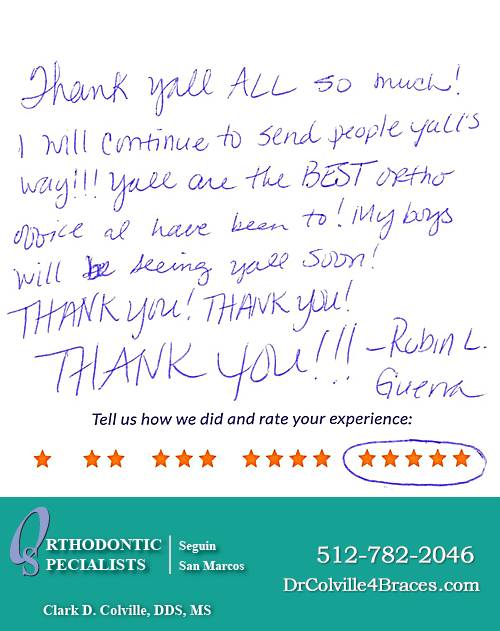 Thank yall ALL so much!
I will continue to send people yall's
way!!! Yall are the BEST ortho
office I have been to! My boys
will be seeing yall soon!
THANK YOU! THANK YOU!
THANK YOU!!! -Rubin L.
Guerra
Tell us how we did and rate your experience:
ORTHODONTIC
SPECIALISTS
Seguin
San Marcos
512-782-2046
DrColville4Braces.com
Clark D. Colville, DDS, MS